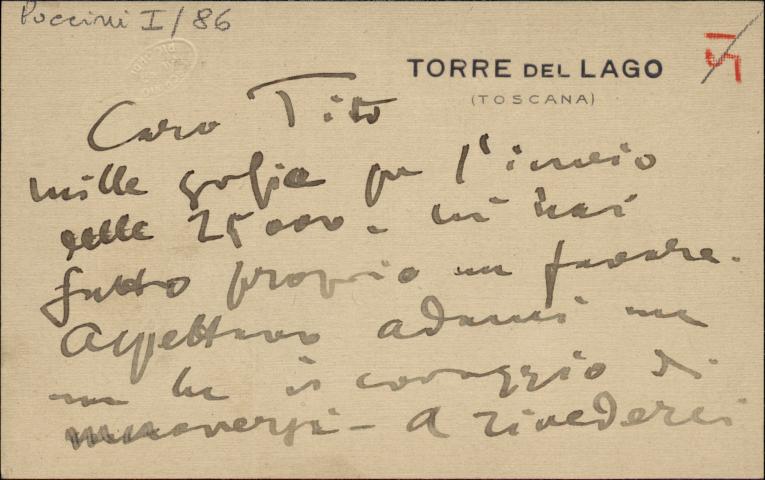 Puccini I/86
TORRE DEL LAGO
(TOSCANA)
5
Caro Tito
mille grazie per l'invio
delle 25000 - mi hai
fatto proprio un favore.
Aspettavo Adami ma
non ha il coraggio di
muoversi - A rivederci